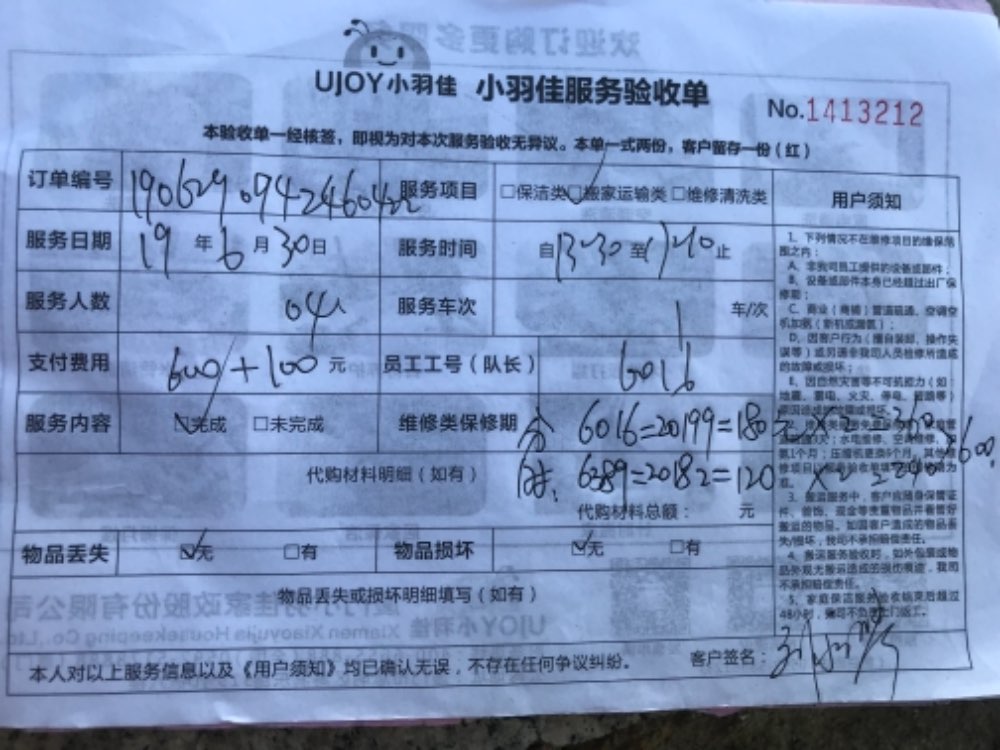 UJOY小羽佳 小羽佳服务验收单
No.1413212
本验收单一经核签，即视为对本次服务验收无异议。本单一式两份，客户留存一份（红）
订单编号 服务项目 □保洁类 □搬家运输类 □维修清洗类 用户须知
服务日期 19年6月30日 服务时间 自13:30至17:40止
服务人数 04人 服务车次 1 车/次
支付费用 600+100 元 员工工号（队长） 6016
服务内容 ☑完成 □未完成 维修类保修期
分 6016=20199=180元×2=360
6389=20182=120×2=240
600
代购材料明细（如有）
代购材料总额： 元
物品丢失 ☑无 □有 物品损坏 ☑无 □有
物品丢失或损坏明细填写（如有）
本人对以上服务信息以及《用户须知》均已确认无误，不存在任何争议纠纷。 客户签名：
1、下列情况不在维修项目的维保范围之内：
A、非我司员工提供的设备或部件；
B、设备或部件本身已经超过出厂保修期；
C、商业（商铺）管道疏通、空调空机加氨（新机或漏氨）；
D、因客户行为（擅自装卸、操作失误等）或另请非我司人员检修所造成的故障或损坏；
E、因自然灾害等不可抗能力（如：地震、雷电、火灾、停电、短路等）
3、搬运服务中，客户应随身保管证件、首饰、现金等贵重物品并看管好搬运的物品。如因客户造成的物品丢失/损坏，我司不承担赔偿责任。
4、搬运服务验收时，如外包装或物品外观无搬运造成的损伤痕迹，我司不承担赔偿责任。
5、家庭保洁服务验收结束后超过48小时，